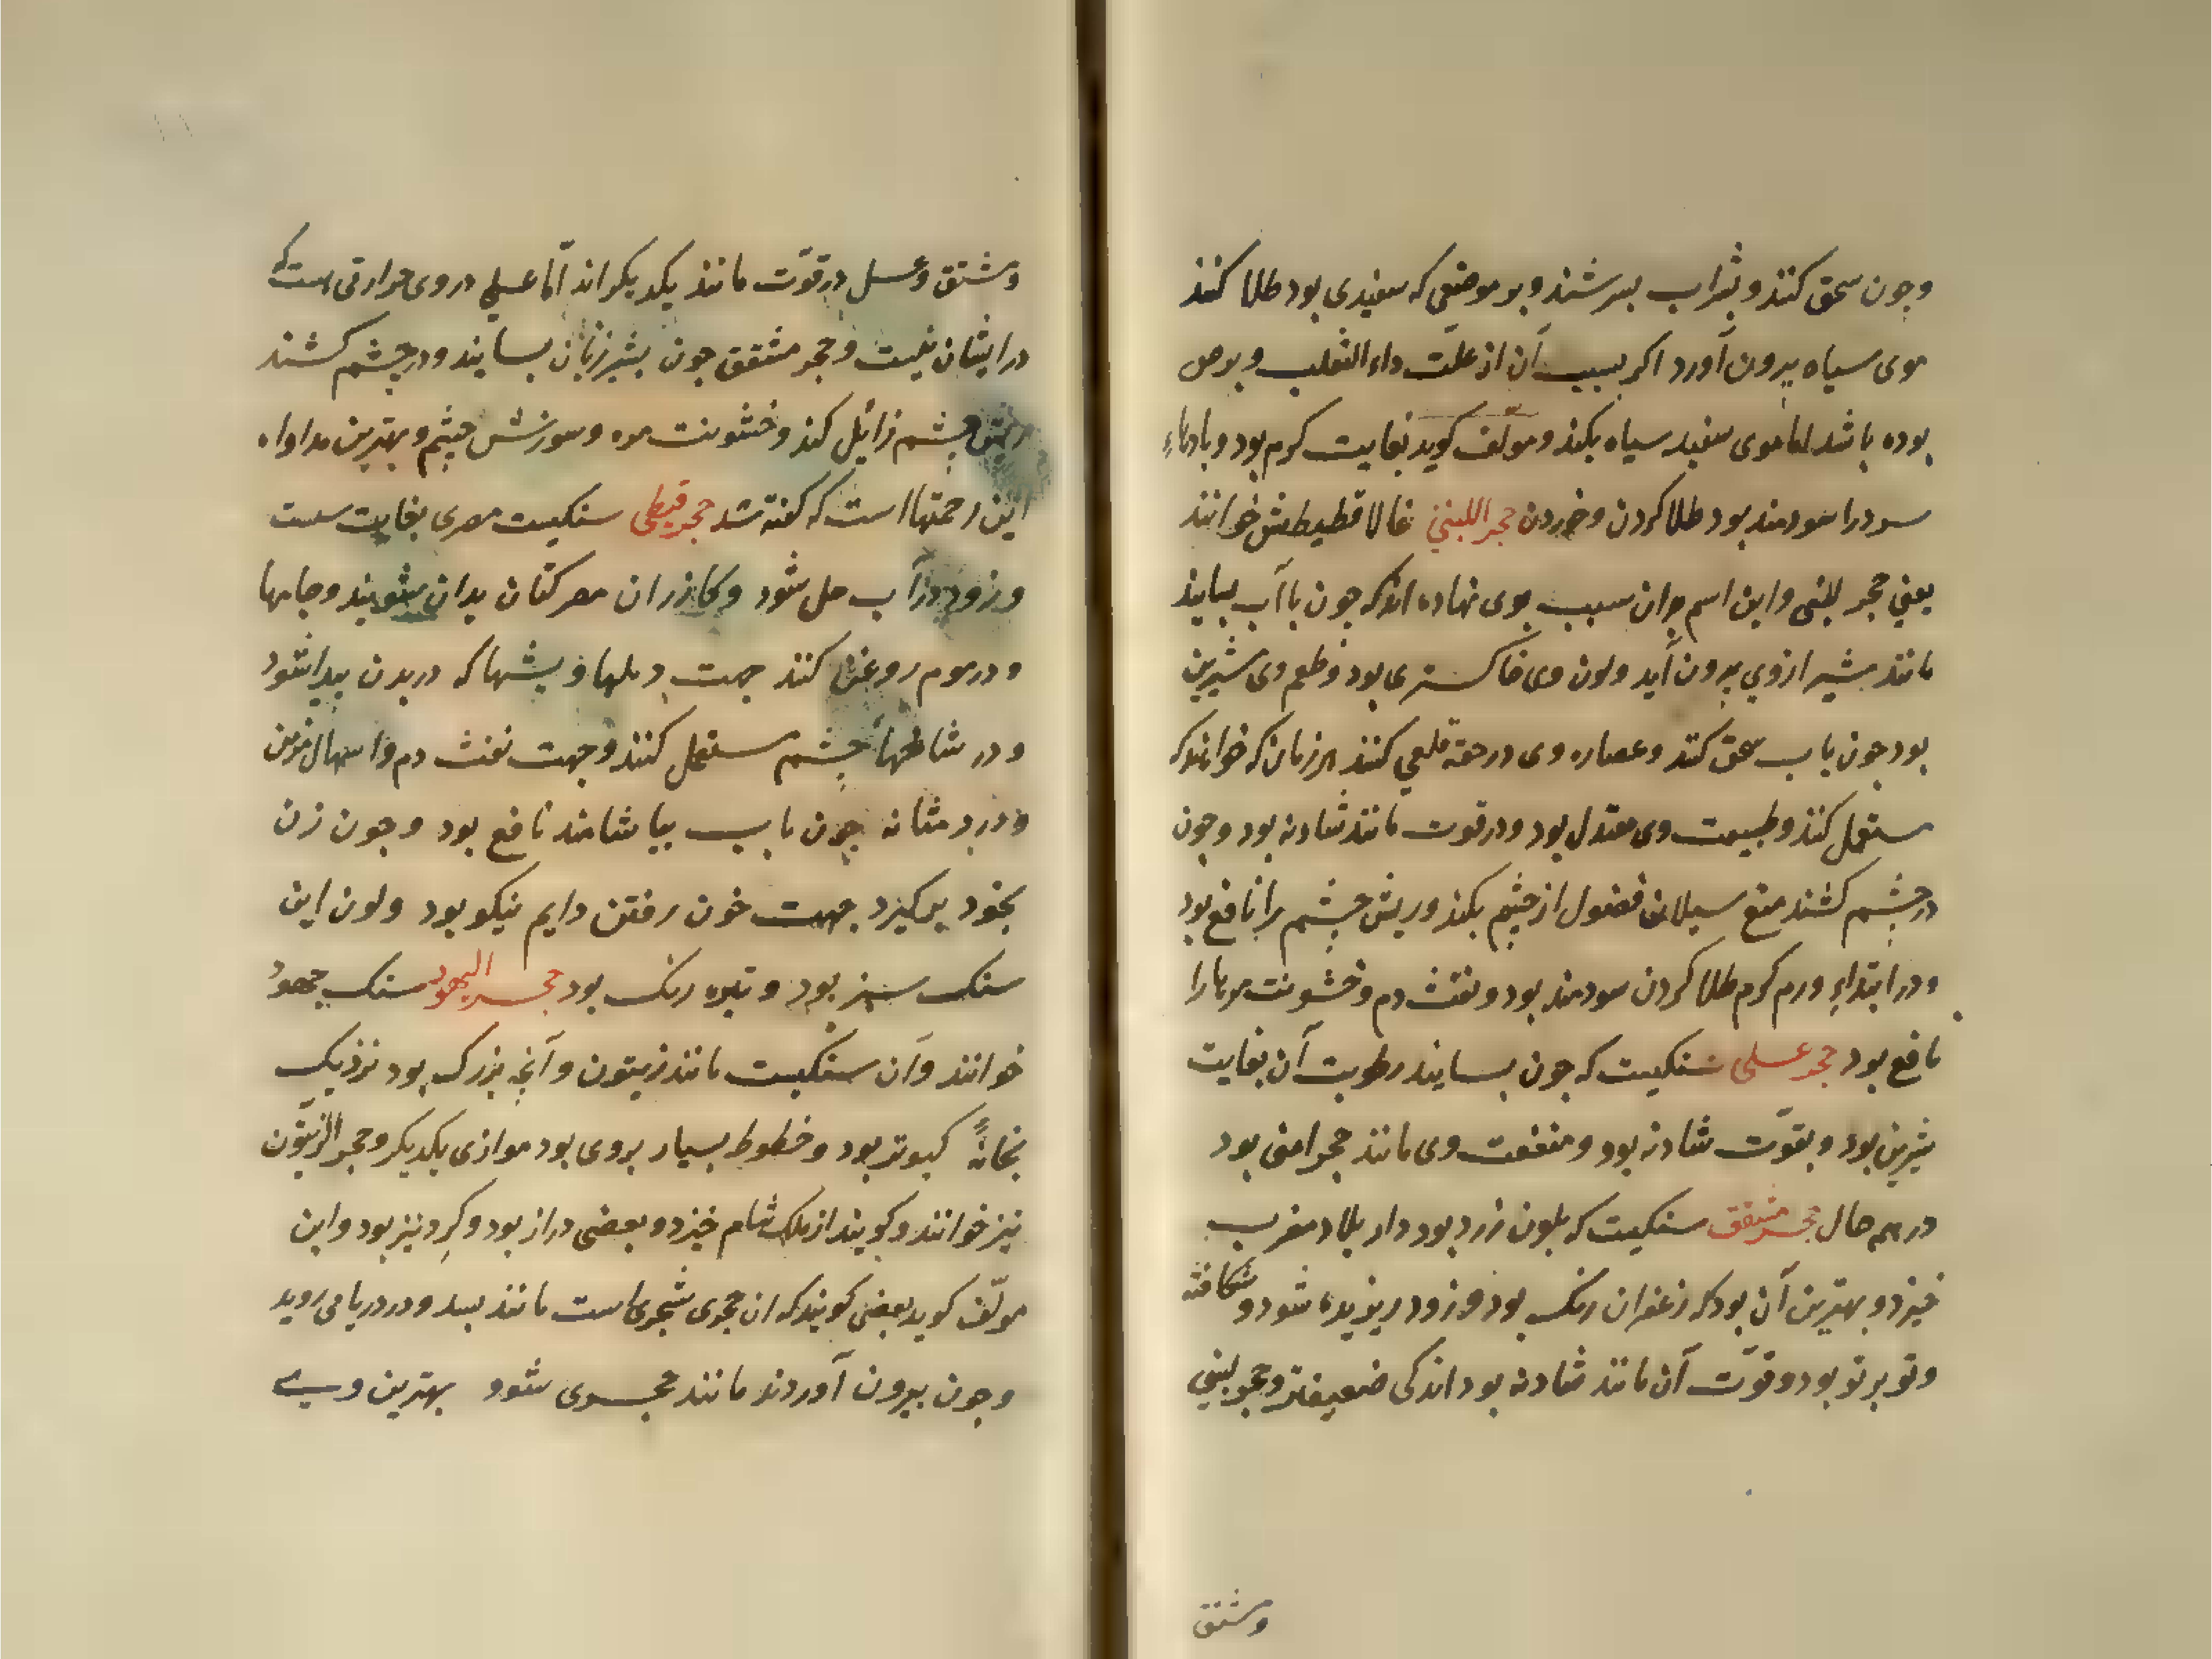 وچون سحق کنند و بشراب بسرشند و بر موضعی که سفیدی بود طلا کنند
موی سیاه بیرون آورد اکر بسبب آن از علت داء الثعلب و برص
بوده باشد اما موی سفید سیاه بکند و مولف کوید بغایت کرم بود و بادهاء
سر را سودمند بود طلا کردن و خوردن حجر اللبنی غالاقطیطش خوانند
یعنی حجر لبنی و این اسم بران سبب بوی نهاده اند که چون با آب بسایند
مانند شیر از وی بیرون آید و لون وی خاکستری بود و طعم وی شیرین
بود چون باب سحق کنند و عصاره وی در حقه قلعی کنند هر زمان که خواهند که
مستعمل کنند و طبیعت وی معتدل بود و در قوت مانند شادنه بود و چون
در چشم کشند منع سیلان فضول از چشم بکند و ریش چشم را نافع بود
و در ابتداء ورم کرم طلا کردن سودمند بود و نفث دم و خشونت را
نافع بود حجر عسلی سنکیست که چون بسایند رطوبت آن بغایت
شیرین بود و بقوت شادنه بود و منفعت وی مانند حجر لبنی بود
در همه حال حجر مشقق سنکیست که بلون زرد بود و از بلاد مغرب
خیزد و بهترین آن بود که زعفران رنک بود و زود ریزیده شود و شکافته
و تو بر تو بود و قوت آن مانند شادنه بود اندکی ضعیفتر و حجر لبنی
ومشقق
ومشقق و عسلی در قوت مانند یکدیکراند اما عسلی در وی حرارتی هست که
در ایشان نیست و حجر مشقق چون بشیر زنان بسایند و در چشم کشند
چشم زایل کند و خشونت و سوزش چشم و بهترین مداواه
این زحمتها است که کفته شد حجر قبطی سنکیست مصری بغایت سست
و زود در آب حل شود و کازران مصر کتان بدان شویند و جامها
و در موم روغن کنند جهت دملها و ریشها که در بدن پیدا شود
و در شافهاء چشم مستعمل کنند و جهت نفث دم و اسهال مزمن
و درد مثانه چون باب بیاشامند نافع بود و چون زن
بخود برکیرد جهت خون رفتن دایم نیکو بود و لون این
سنک سبز بود و تیره رنک بود حجر الیهود سنک جهود
خوانند و آن سنکیست مانند زیتون و آنچه بزرک بود نزدیک
کبوتر بود و خطوط بسیار بروی بود موازی یکدیکر و حجر الزیتون
نیز خوانند و کویند از ملک شام خیزد و بعضی دراز بود و کرد نیز بود و این
مولف کوید بعضی کویند که ان حجری شجری است مانند بسد و در دریا می روید
و چون بیرون آوردند مانند حجری شود بهترین وی